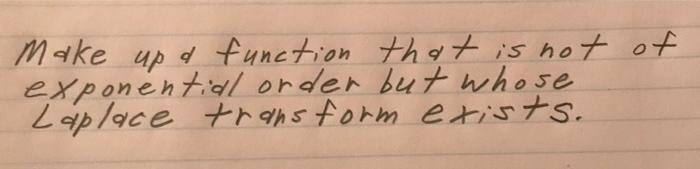 Make up a function that is not of
exponential order but whose
Laplace transform exists.